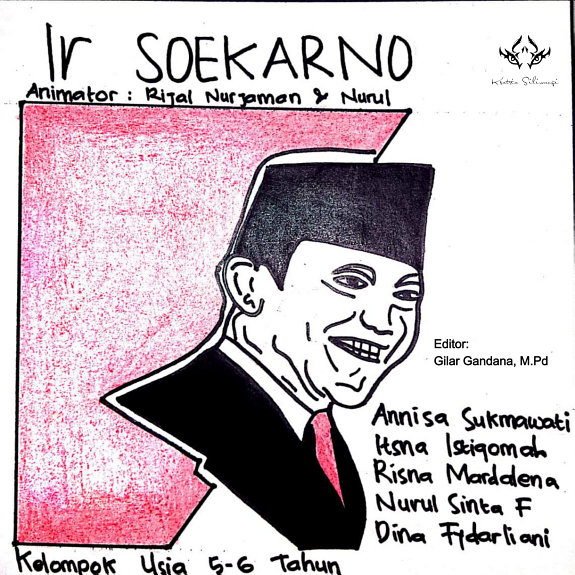 Ir SOEKARNO
Animator : Rijal Nurzaman & Nurul
Editor:
Gilar Gandana, M.Pd
Annisa Sukmawati
Itsna Istiqomah
Risna Marddlena
Nurul Sinta F
Dina Fydarliani
Kelompok Usia 5-6 Tahun